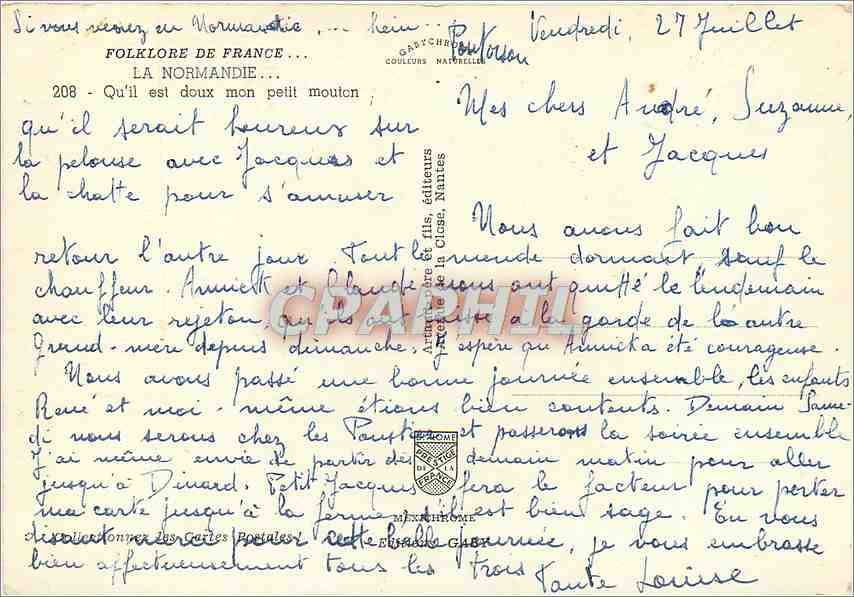 Si vous venez en Normandie ... hein ...
FOLKLORE DE FRANCE...
LA NORMANDIE...
208 - Qu'il est doux mon petit mouton
qu'il serait heureux sur
la pelouse avec Jacques et
la chatte pour s'amuser
GABYCHROM
COULEURS NATURELLES
Pontorson
Vendredi, 27 Juillet
Mes chers André, Suzanne,
et Jacques
Nous avons fait bon
retour l'autre jour. Tout le monde dormait sauf le
chauffeur. Annick et Claude nous ont quitté le lendemain
avec leur rejeton, qu'ils ont laissé à la garde de l'autre
Grand-mère depuis dimanche. J'espère qu'Annick a été courageuse.
Nous avons passé une bonne journée ensemble, les enfants
René et moi-même étions bien contents. Demain Same-
di nous serons chez les et passerons la soirée ensemble
J'ai même envie de partir dès demain matin pour aller
jusqu'à Dinard. Petit Jacques fera le facteur pour porter
ma carte jusqu'à la ferme, s'il est bien sage. En vous
disant merci pour cette belle journée, je vous embrasse
bien affectueusement tous les trois
Tante Louise
Artaud père et fils, éditeurs
de la Close, Nantes
MEXICHROME
PRESTIGE
DE LA
FRANCE
MEXICHROME
Collectionnez les Cartes Postales
Editions GABY
CPAPHIL